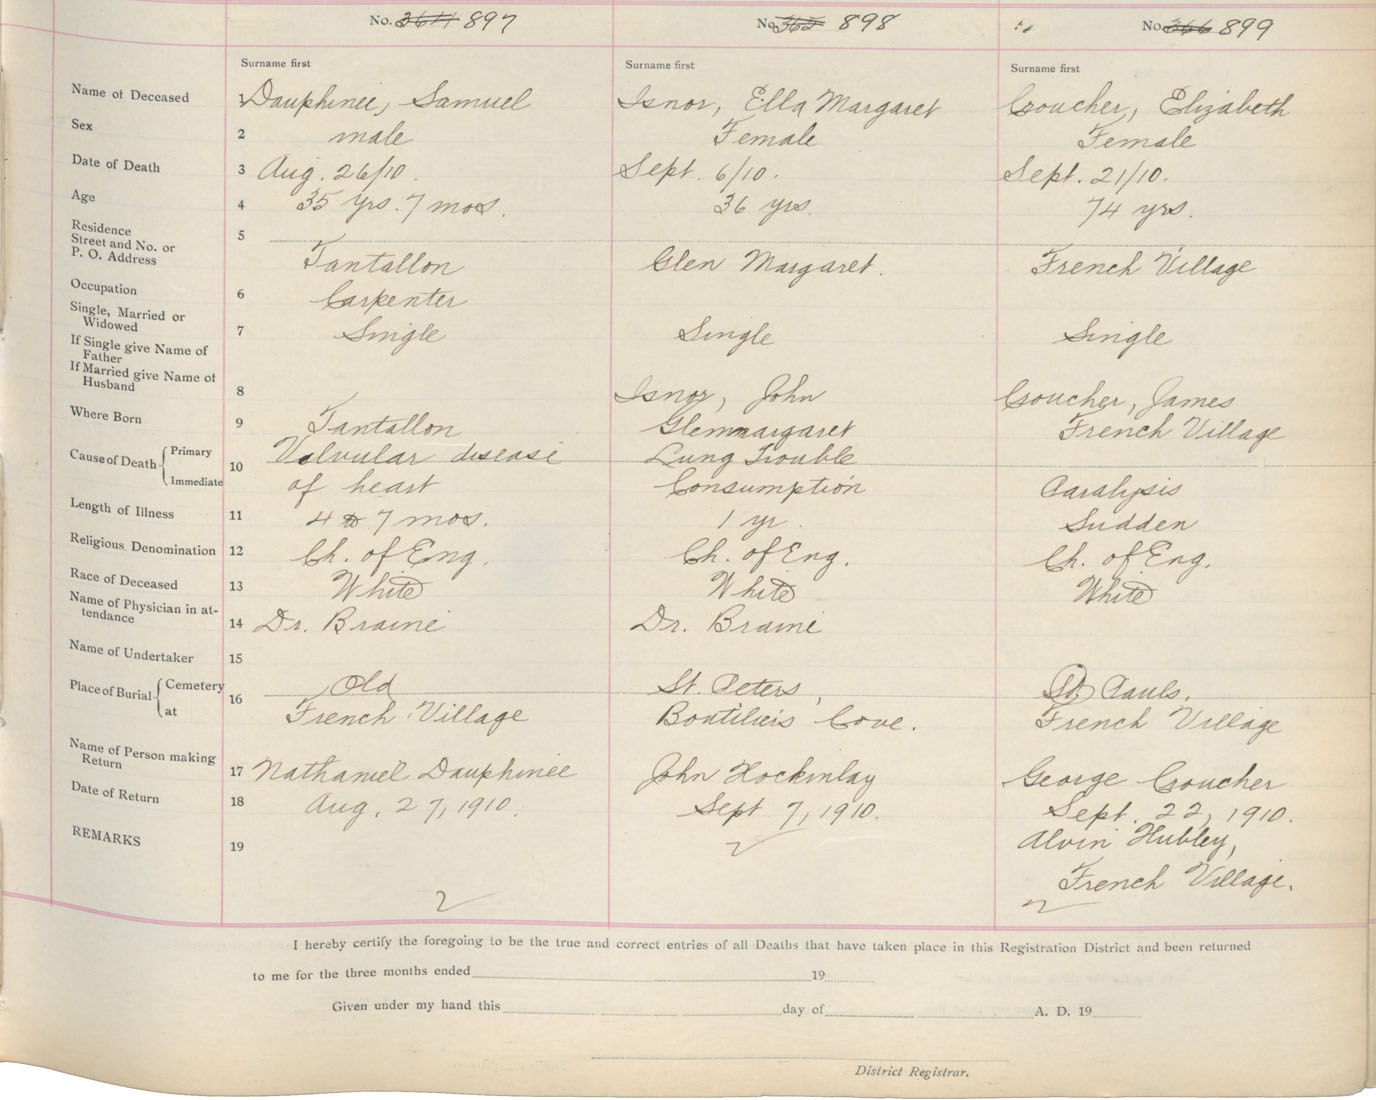 No. 364 897 No. 365 898 No. 366 899
Surname first Surname first Surname first
Name of Deceased 1 Dauphinee, Samuel Isnor, Ella Margaret Croucher, Elizabeth
Sex 2 male Female Female
Date of Death 3 Aug. 26/10. Sept. 6/10. Sept. 21/10.
Age 4 35 yrs. 7 mos. 36 yrs. 74 yrs.
Residence
Street and No. or 5
P. O. Address Tantallon Glen Margaret. French Village
Occupation 6 Carpenter
Single, Married or
Widowed 7 Single Single Single
If Single give Name of
Father
If Married give Name of
Husband 8 Isnor, John Croucher, James
Where Born 9 Tantallon Glenmargaret French Village
Cause of Death Primary 10 Valvular disease Lung Trouble
Immediate of heart Consumption Paralysis
Length of Illness 11 4 to 7 mos. 1 yr. Sudden
Religious Denomination 12 Ch. of Eng. Ch. of Eng. Ch. of Eng.
Race of Deceased 13 White White White
Name of Physician in at-
tendance 14 Dr. Braine Dr. Braine
Name of Undertaker 15
Place of Burial Cemetery 16 Old St. Peters, St. Pauls.
at French Village Boutiliers Cove. French Village
Name of Person making
Return 17 Nathaniel Dauphinee John Hockinlay George Croucher
Date of Return 18 Aug. 27, 1910. Sept 7, 1910. Sept. 22, 1910.
REMARKS 19 Alvin Hubley,
French Village.
I hereby certify the foregoing to be the true and correct entries of all Deaths that have taken place in this Registration District and been returned
to me for the three months ended 19
Given under my hand this day of A. D. 19
District Registrar.